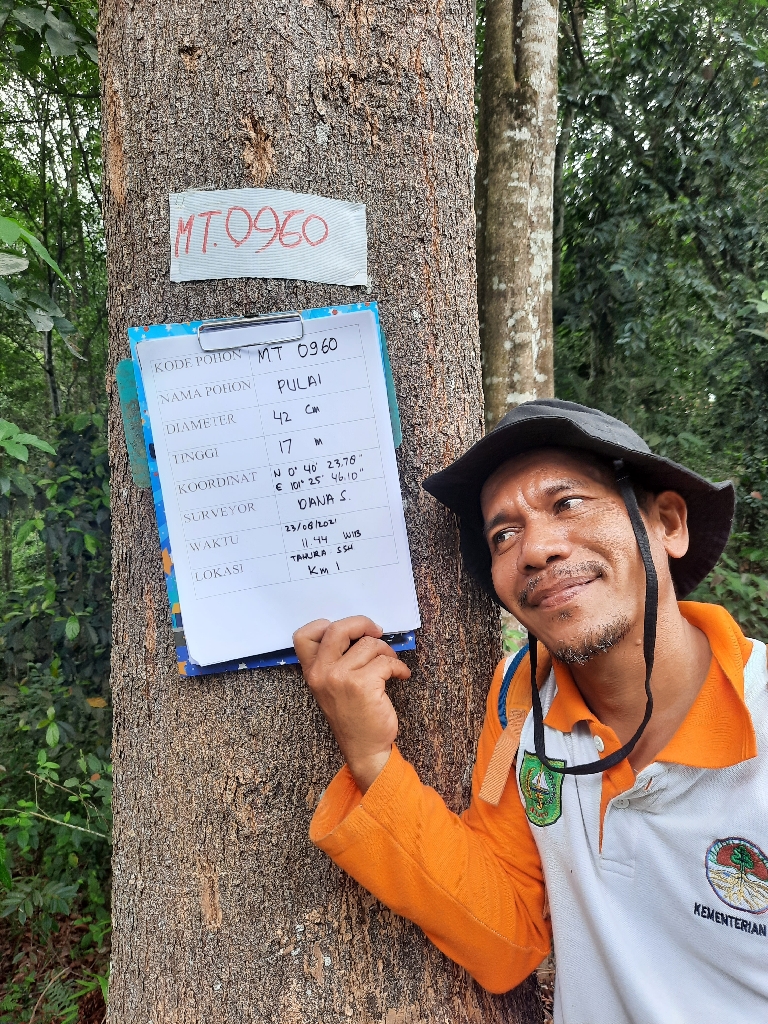 MT.0960
KODE POHON MT 0960
NAMA POHON PULAI
DIAMETER 42 Cm
TINGGI 17 m
KOORDINAT N 0° 40' 23.76"
E 101° 25' 46.10"
SURVEYOR DANA S.
WAKTU 23/08/2021
11.44 WIB
LOKASI TAHURA SSH
KM 1
KEMENTERIAN